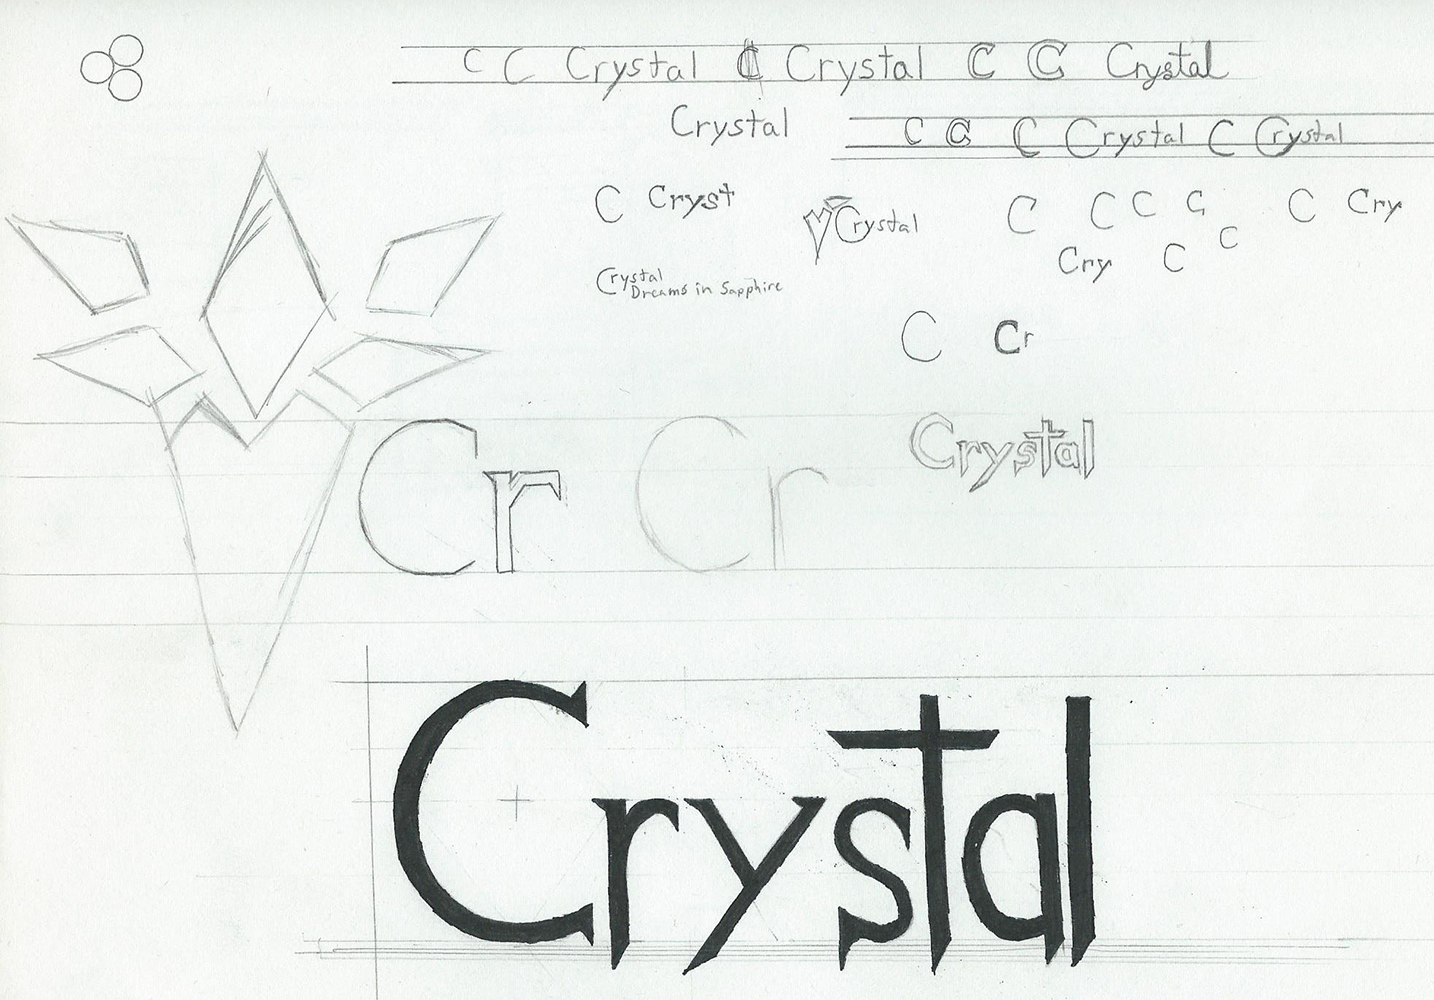 C C Crystal C Crystal C C Crystal
Crystal
C C C Crystal C Crystal
C Cryst
Crystal
C C C C C Cry
Cry C C
Crystal
Dreams in Sapphire
C Cr
Cr Cr
Crystal
Crystal